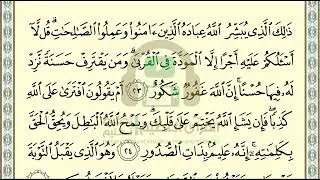 ذَٰلِكَ ٱلَّذِى يُبَشِّرُ ٱللَّهُ عِبَادَهُ ٱلَّذِينَ ءَامَنُوا۟ وَعَمِلُوا۟ ٱلصَّٰلِحَٰتِ ۗ قُل لَّآ
أَسْـَٔلُكُمْ عَلَيْهِ أَجْرًا إِلَّا ٱلْمَوَدَّةَ فِى ٱلْقُرْبَىٰ ۗ وَمَن يَقْتَرِفْ حَسَنَةً نَّزِدْ
لَهُۥ فِيهَا حُسْنًا ۚ إِنَّ ٱللَّهَ غَفُورٌ شَكُورٌ ٢٣ أَمْ يَقُولُونَ ٱفْتَرَىٰ عَلَى ٱللَّهِ
كَذِبًا ۖ فَإِن يَشَإِ ٱللَّهُ يَخْتِمْ عَلَىٰ قَلْبِكَ ۗ وَيَمْحُ ٱللَّهُ ٱلْبَٰطِلَ وَيُحِقُّ ٱلْحَقَّ
بِكَلِمَٰتِهِۦٓ ۚ إِنَّهُۥ عَلِيمٌۢ بِذَاتِ ٱلصُّدُورِ ٢٤ وَهُوَ ٱلَّذِى يَقْبَلُ ٱلتَّوْبَةَ